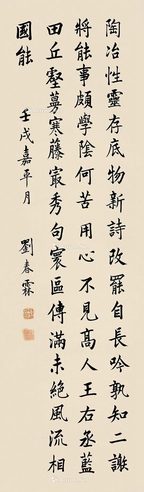 陶冶性靈存底物新詩改罷自長吟孰知二謝
將能事頗學陰何苦用心不見高人王右丞藍
田丘壑蔓寒藤最秀句寰區傳滿未絕風流相
國能
壬戌嘉平月
劉春霖